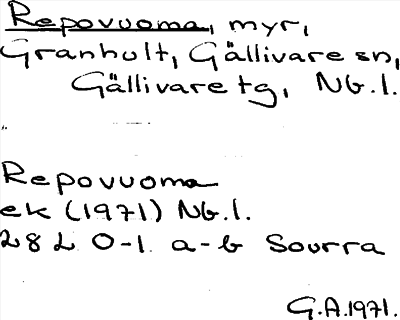 Repovuoma, myr,
Granhult, Gällivare sn,
Gällivare tg, Nb.l.
Repovuoma
ek (1971) Nb.l.
28 L 0-1 a-b Sourra
G.A.1971.